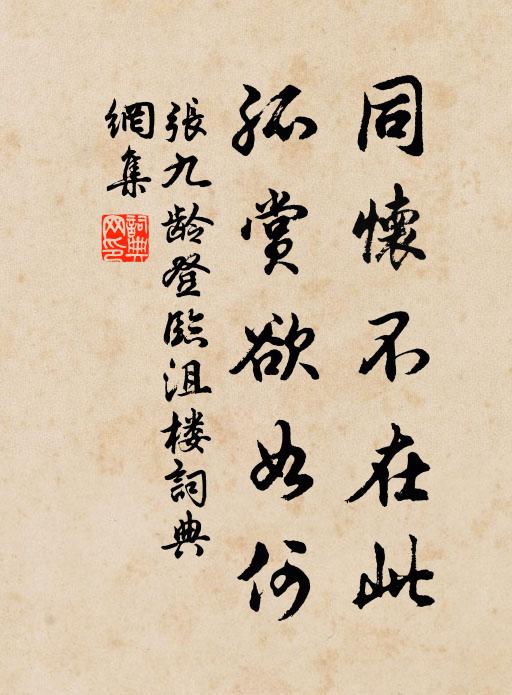 同懷不在此
孤賞欲如何
張九龄登臨沮楼詞典
網集
詞典
网印